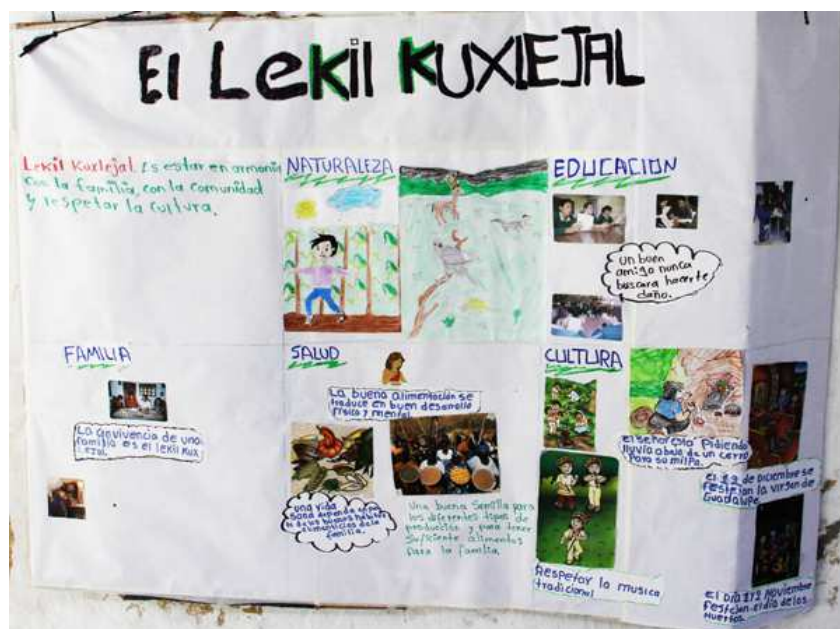 El LeKil KUXLEJAL
Lekil Kuxlejal. Es estar en armonia
con la familia, con la comunidad
y respetar la cultura.
NATURALEZA
EDUCACION
un buen
amigo nunca
buscara hacerte
daño.
FAMILIA
La convivencia de una
familia es el lekil Kux
lejal.
SALUD
La buena alimentación se
traduce en buen desarrollo
fisico y mental.
una vida
sana depende
de los buenos habitos
alimenticios de la
familia.
Una buena Semilla para
los diferentes tipos de
producción y para tener
suficiente alimentos
para la familia.
CULTURA
El señor esta Pidiendo
lluvia abajo de un cerro
Para su milpa.
Respetar la musica
tradicional
El 12 de Diciembre se
festejan la virgen de
Guadalupe.
El Día 1 y 2 Noviembre
Festejan el día de los
muertos.